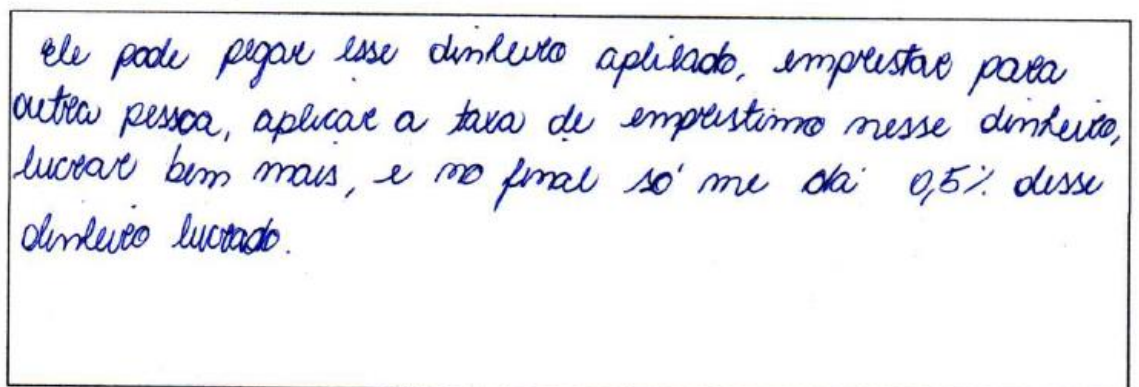 ele pode pegar esse dinheiro aplicado, emprestar para
outra pessoa, aplicar a taxa de emprestimo nesse dinheiro,
lucrar bem mais, e no final só me dá 0,5% desse
dinheiro lucrado.